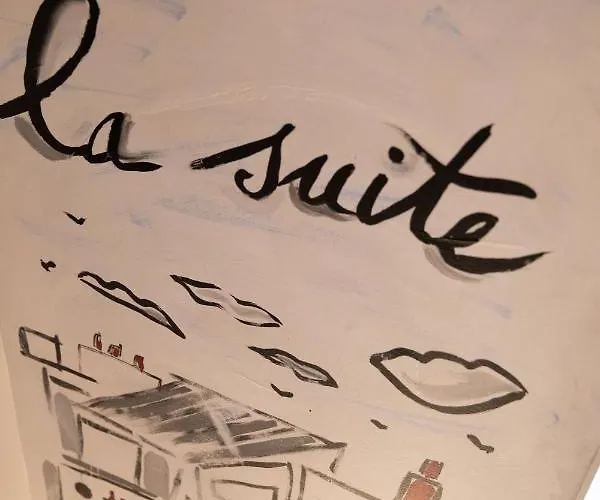 la suite